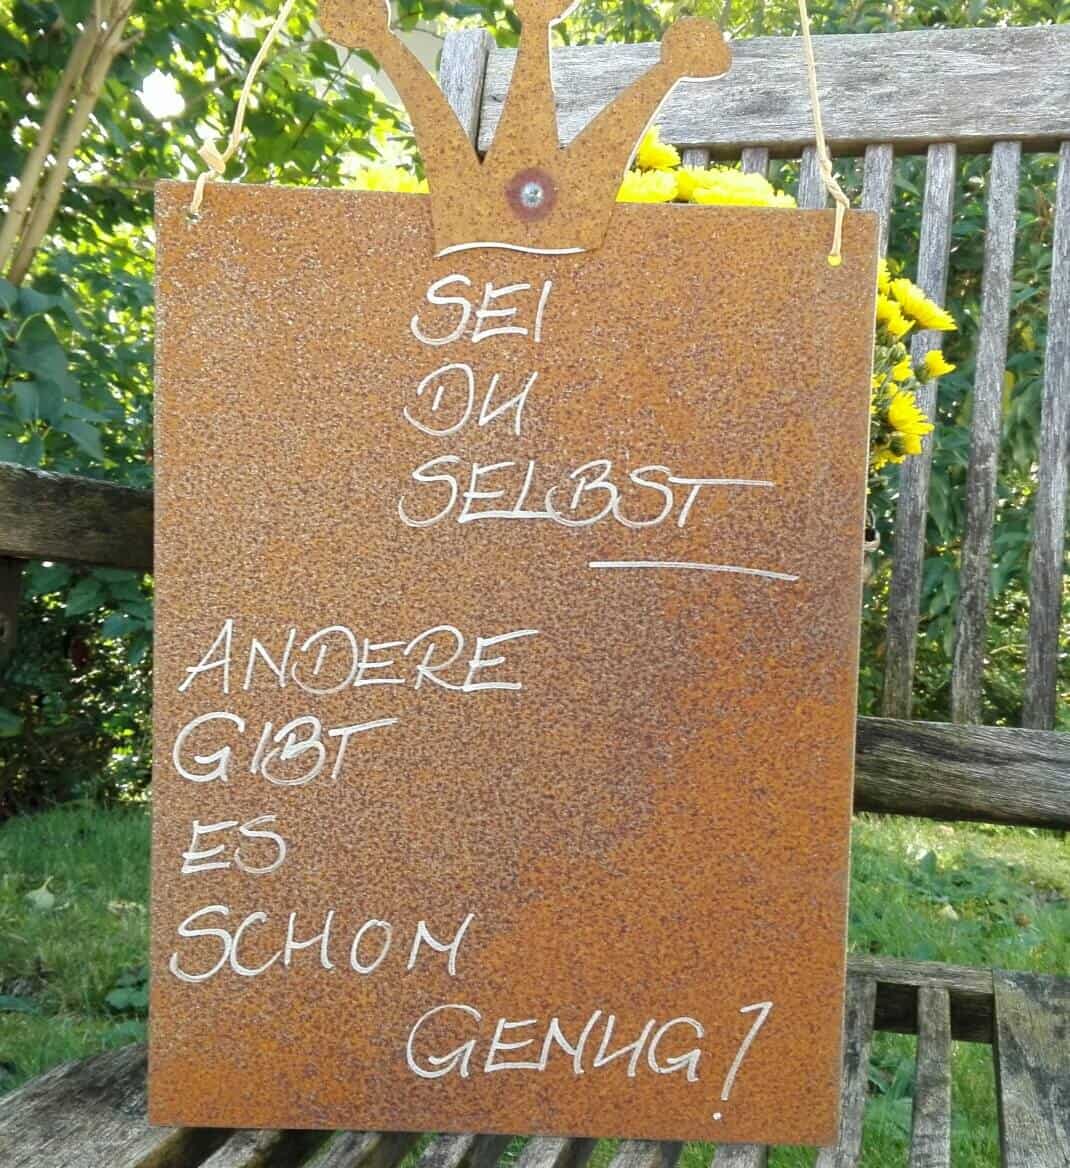 SEI
DU
SELBST
ANDERE
GIBT
ES
SCHON
GENUG!